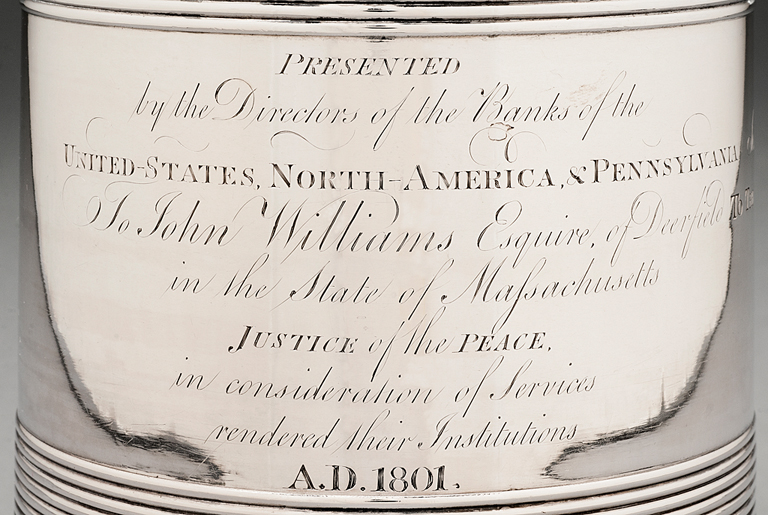 PRESENTED
by the Directors of the Banks of the
UNITED-STATES, NORTH-AMERICA, & PENNSYLVANIA
To John Williams Esquire, of Deerfield
in the State of Maſsachusetts
JUSTICE of the PEACE,
in consideration of Services
rendered their Institutions
A.D. 1801.